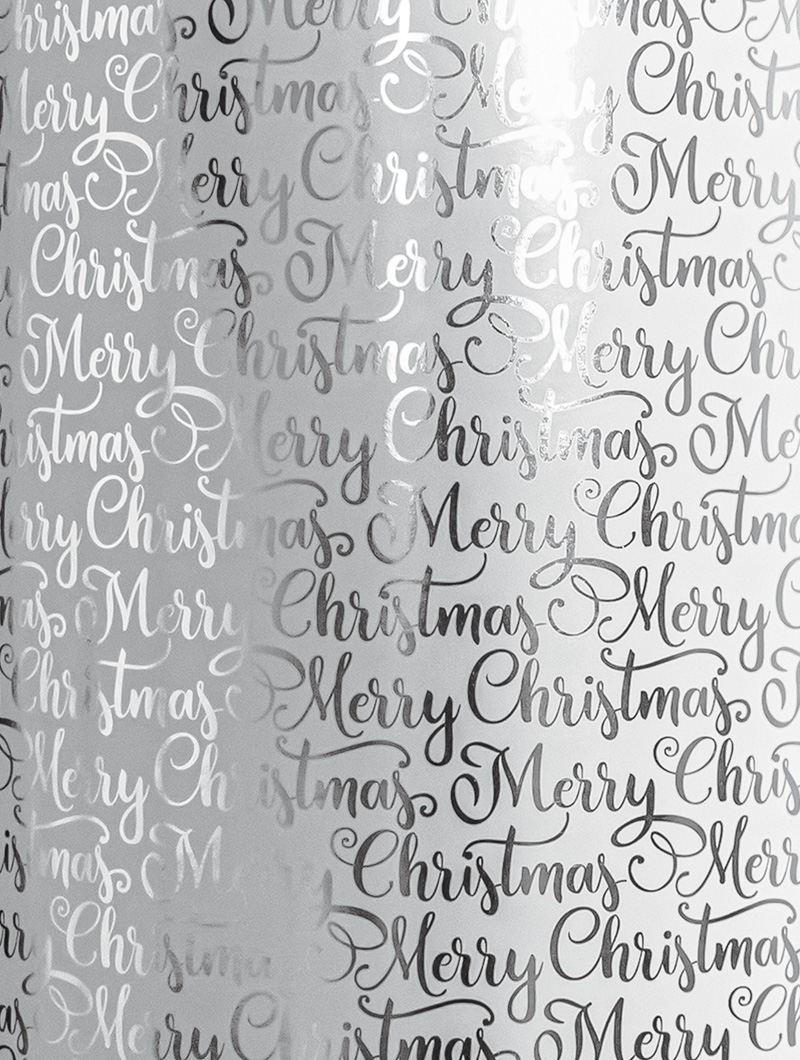 Christmas Merry Christmas M
Merry Christmas Merry Christm
mas Merry Christmas Merry
Christmas Merry Christmas
Merry Christmas Merry Chr
ristmas Merry Christmas Me
erry Christmas Merry Christma
mas Merry Christmas Merry C
Christmas Merry Christmas
Merry Christmas Merry Chris
is mas Merry Christmas Merr
rry Christmas Merry Christmas
as Merry Christmas Merry Ch